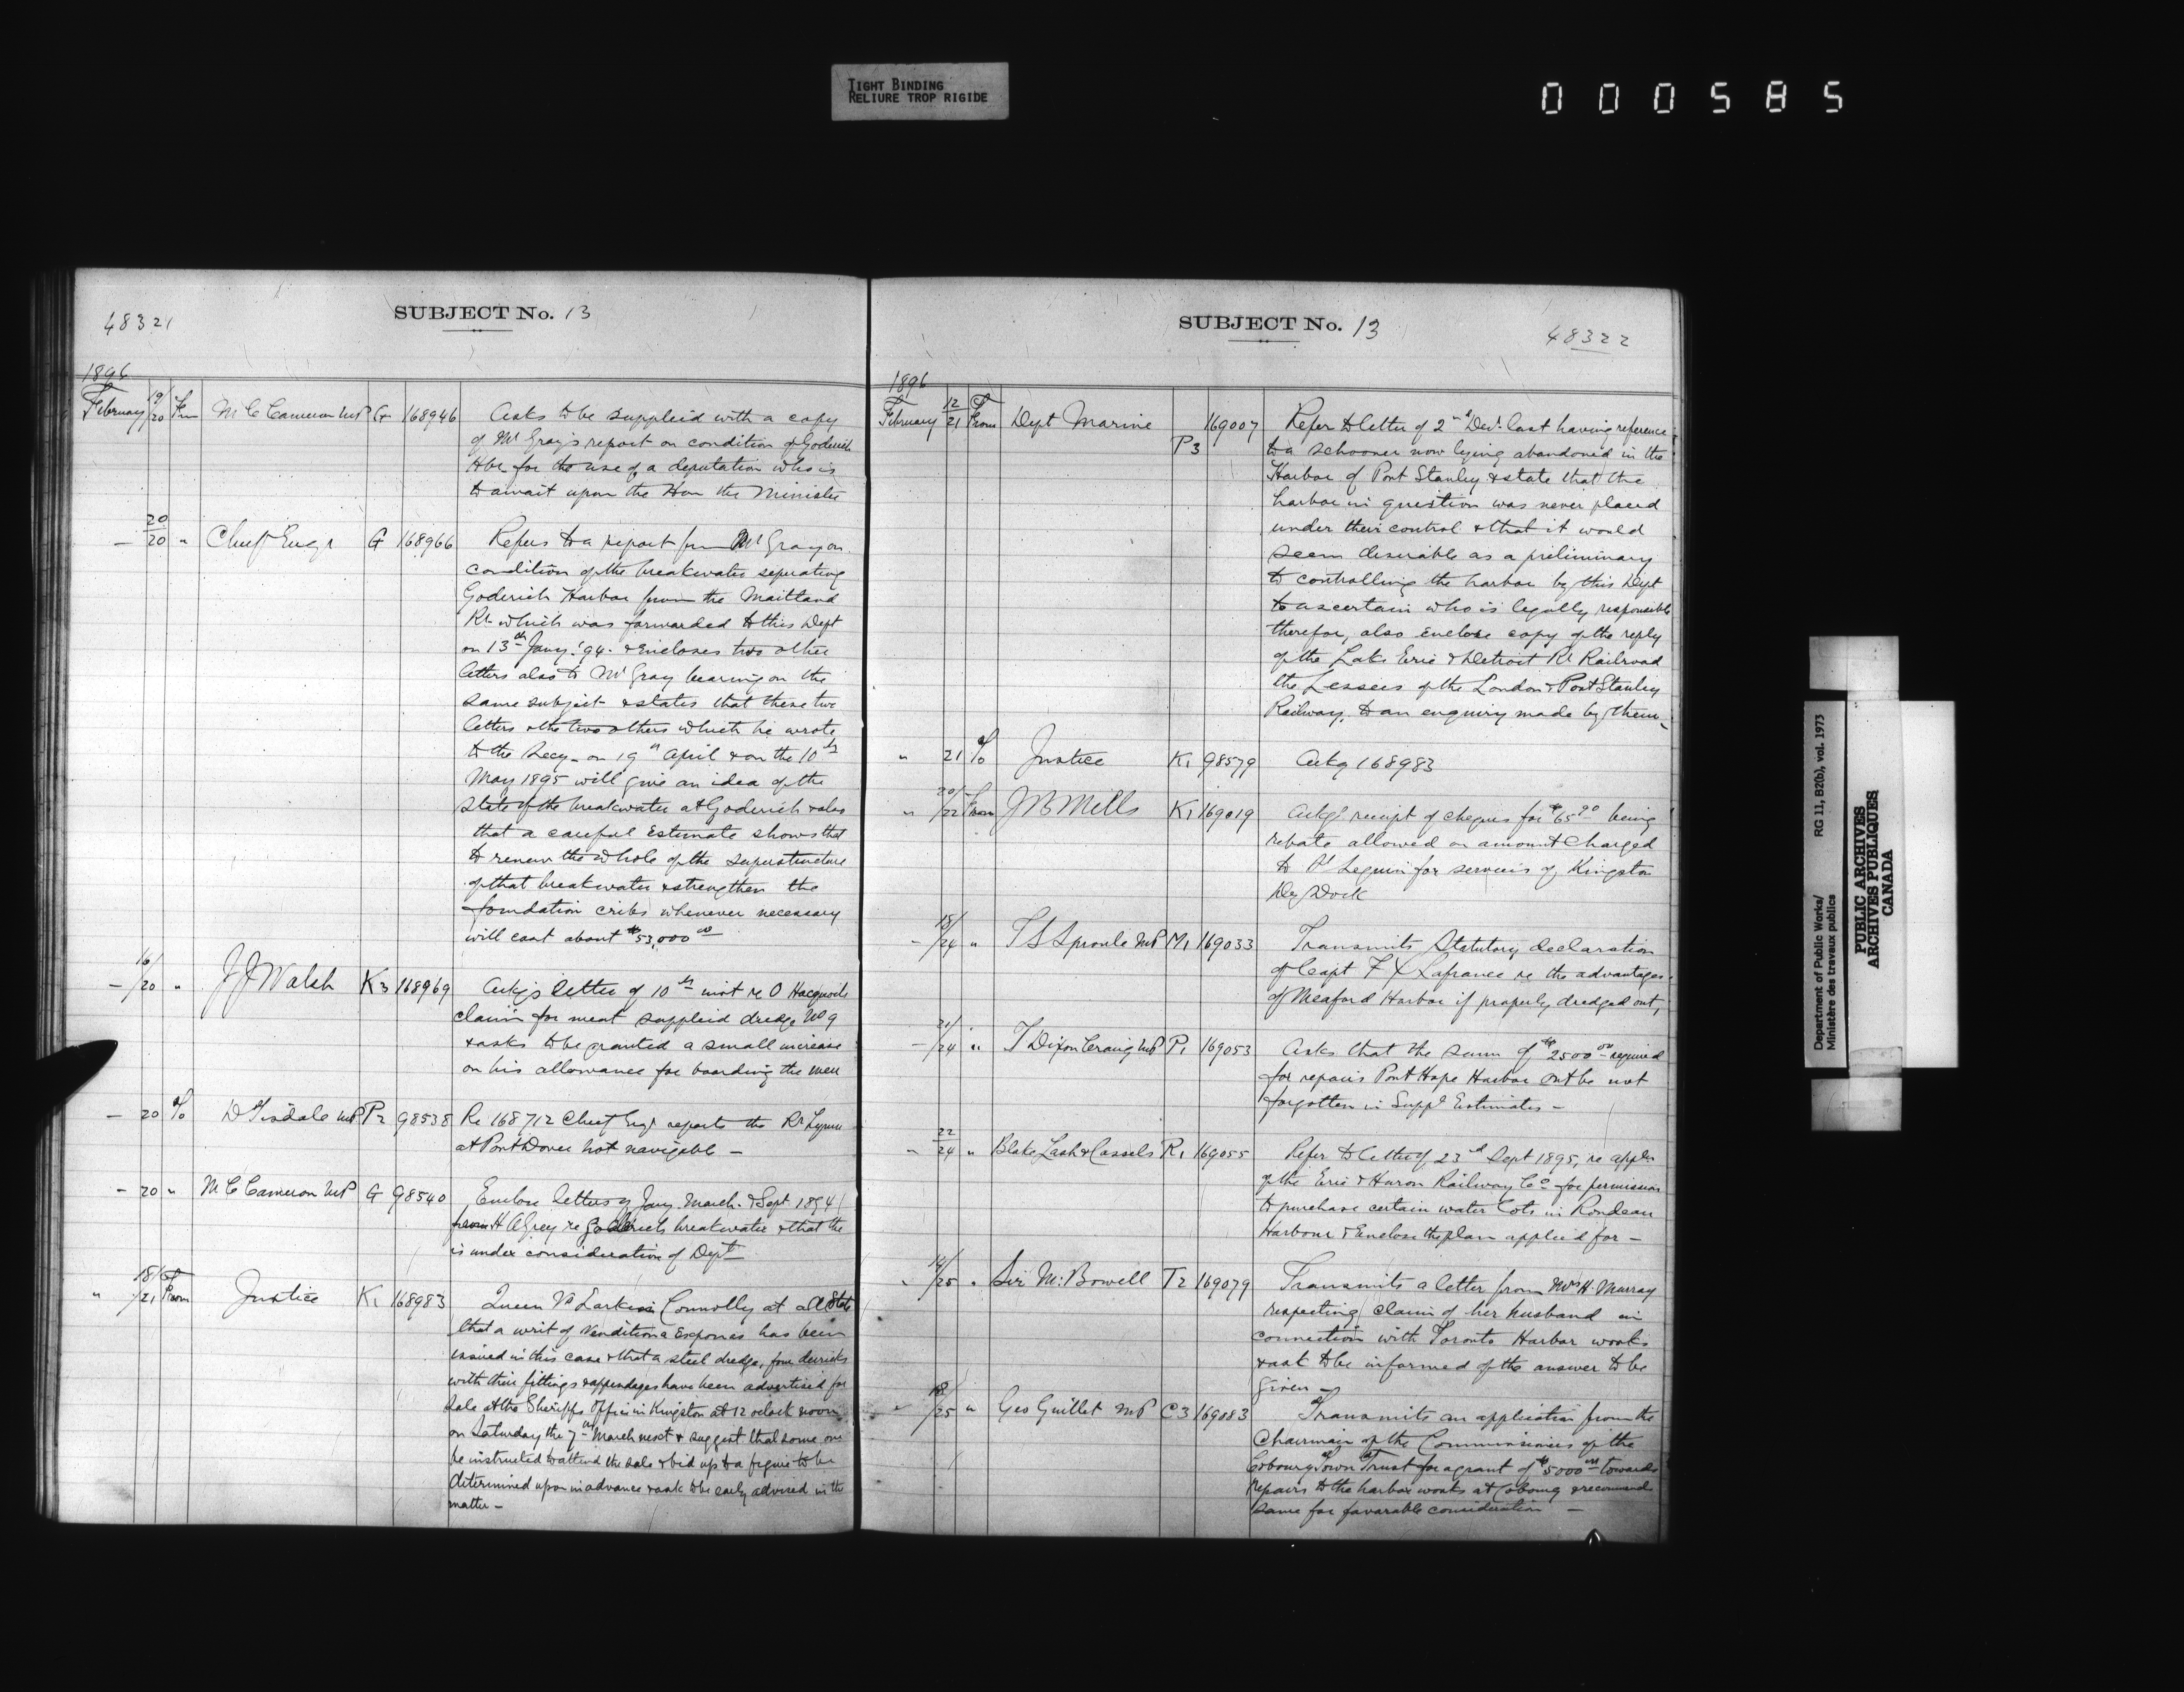 TIGHT BINDING
RELIURE TROP RIGIDE
000585
48321
SUBJECT No. 13
1896
February 19/20 From M C Cameron MP G 168946 Asks to be supplied with a copy
of Mr Gray's report on condition of Goderich
Hbr for the use of a deputation who is
to await upon the Hon the Minister
— 20/20 " Chief Engr G 168966 Refers to a report from Mr Gray on
condition of the breakwater seperating
Goderich Harbor from the Maitland
Rr which was forwarded to this Dept
on 13th Jany '94 & encloses two other
letters also to Mr Gray bearing on the
same subject & states that these two
letters & the two others which he wrote
to the Secy on 19th April & on the 10th
May 1895 will give an idea of the
state of the breakwater at Goderich & also
that a careful estimate shows that
to renew the whole of the superstructure
of that breakwater & strengthen the
foundation cribs whenever necessary
will cost about $53,000 00
— 16/20 " J J Walsh K3 168969 Ackgs letter of 10th inst re O
claim for meat supplied dredge No 9
& asks to be granted a small increase
on his allowance for boarding the men
— 20 To D Tisdale MP P2 98538 Re 168712 Chief Engr reports the Rr Lynn
at Port Dover not navigable —
— 20 " M C Cameron MP G 98540 Enclose letters of Jany. March. & Sept 1894
from H A Grey re Goderich breakwater & that the
is under consideration of Dept
" 18/21 From Justice K1 168983 Queen Vs Larkin Connolly at al State
that a writ of Venditiona Exponas has been
issued in this case & that a steel dredge, four derricks
with their fittings & appendages have been advertised for
sale at the Sheriffs Office in Kingston at 12 oclock noon
on Saturday the 7th March next & suggest that some one
be instructed to attend the sale & bid up to a figure to be
determined upon in advance & ask to be early advised in the
matter —
SUBJECT No. 13
48322
1896
February 12/21 From Dept Marine P3 169007 Refer to letter of 2nd Decr last having reference
to a schooner now lying abandoned in the
Harbor of Port Stanley & state that the
harbor in question was never placed
under their control & that it would
seem desirable as a preliminary
to controlling the harbor by this Dept
to ascertain who is legally responsible
therefor, also enclose copy of the reply
of the Lake Erie & Detroit Rr Railroad
the Lessees of the London & Port Stanley
Railway, to an enquiry made by them —
" 21 To Justice K1 98579 Ackg 168983
" 20/22 From J B Mills K1 169019 Ackgs receipt of cheques for $65 90 being
rebate allowed on amount charged
to for services of Kingston
Dry Dock
— 18/24 " T S Sproule MP M1 169033 Transmits Statutory declaration
of Capt F X Lafrance re the advantages
of Meaford Harbor if properly dredged out,
— 21/24 " T Dixon Craig MP P1 169053 Asks that the sum of $2500 00 required
for repairs Port Hope Harbor Ont be not
forgotten in Suppl Estimates —
— 22/24 " Blake Lash & Cassels R1 169055 Refer to letter of 23rd Sept 1895, re appln
of the Erie & Huron Railway Co for permission
to purchase certain water lots in Rondeau
Harbour & Enclose the plan applied for —
" 14/25 " Sir M. Bowell T2 169079 Transmits a letter from Mrs H. Murray
respecting claim of her husband in
connection with Toronto Harbor works
& ask to be informed of the answer to be
given —
" 18/25 " Geo Guillet MP C3 169083 Transmits an application from the
Chairman of the Commissioners of the
Cobourg Town Trust for a grant of $5000 00 towards
repairs to the harbor works at Cobourg & recommend
same for favorable consideration —
Department of Public Works/
Ministère des travaux publics
RG 11, B2(b), vol. 1973
PUBLIC ARCHIVES
ARCHIVES PUBLIQUES
CANADA